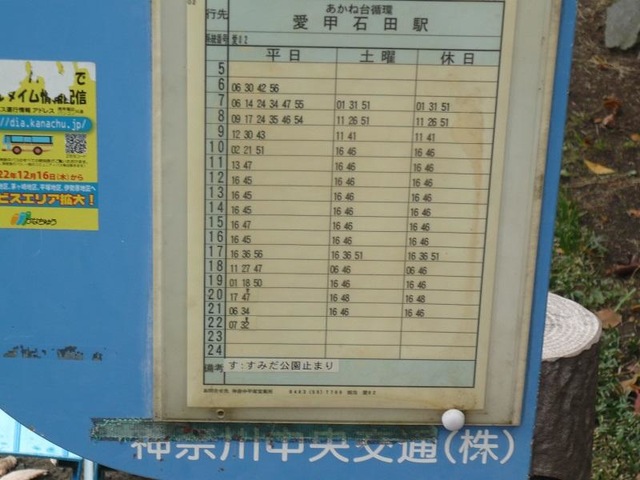 行先
あかね台循環
愛甲石田駅
系統番号 愛82
平日 土曜 休日
5
6 06 30 42 56
7 06 14 24 34 47 55 01 31 51 01 31 51
8 09 17 24 35 46 54 11 26 51 11 26 51
9 12 30 43 11 41 11 41
10 02 21 51 16 46 16 46
11 13 47 16 46 16 46
12 16 45 16 46 16 46
13 16 45 16 46 16 46
14 16 45 16 46 16 46
15 16 47 16 46 16 46
16 16 45 16 46 16 46
17 16 36 56 16 36 51 16 36 51
18 11 27 47 06 46 06 46
19 01 18 50 16 46 16 46
20 17 47 16 48 16 48
21 06 34 16 46 16 46
22 07 32
23
24
備考 す:すみだ公園止まり
神奈川中央交通(株)
で
イム情報配信
//dia.kanachu.jp/
22年12月16日(水)から
ビスエリア拡大!
かなちゅう